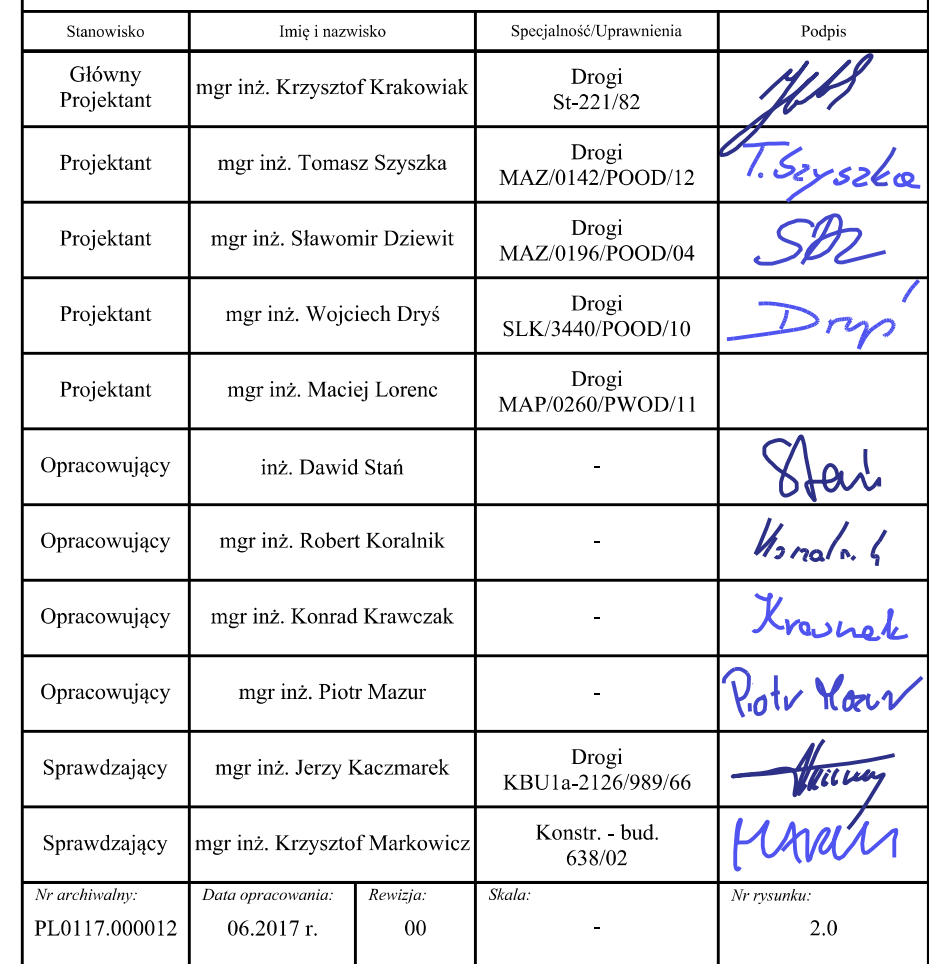 Stanowisko Imię i nazwisko Specjalność/Uprawnienia Podpis
Główny
Projektant
mgr inż. Krzysztof Krakowiak
Drogi
St-221/82
Projektant
mgr inż. Tomasz Szyszka
Drogi
MAZ/0142/POOD/12
T. Szyszka
Projektant
mgr inż. Sławomir Dziewit
Drogi
MAZ/0196/POOD/04
Projektant
mgr inż. Wojciech Dryś
Drogi
SLK/3440/POOD/10
Dryś
Projektant
mgr inż. Maciej Lorenc
Drogi
MAP/0260/PWOD/11
Opracowujący inż. Dawid Stań - Stań
Opracowujący mgr inż. Robert Koralnik -
Opracowujący mgr inż. Konrad Krawczak -
Opracowujący mgr inż. Piotr Mazur - Piotr Mazur
Sprawdzający
mgr inż. Jerzy Kaczmarek
Drogi
KBU1a-2126/989/66
Sprawdzający
mgr inż. Krzysztof Markowicz
Konstr. - bud.
638/02
Nr archiwalny: Data opracowania: Rewizja: Skala: Nr rysunku:
PL0117.000012 06.2017 r. 00 - 2.0